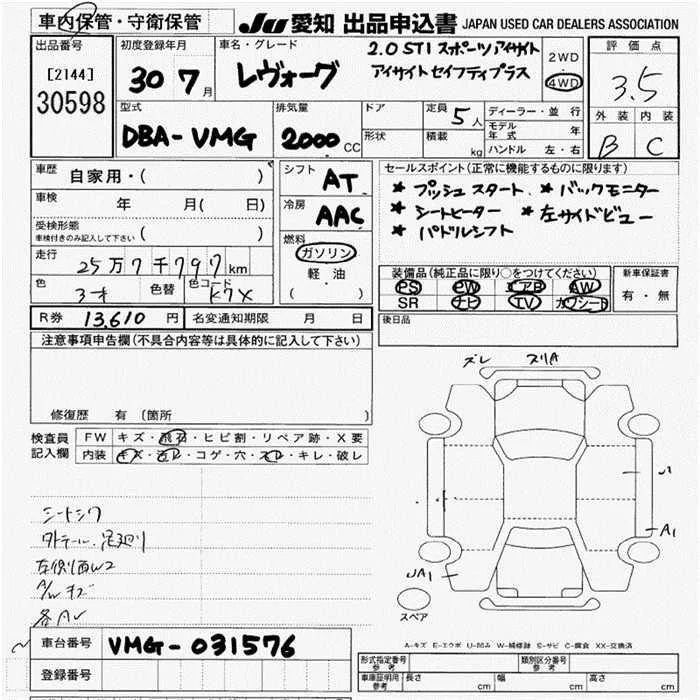 車内保管・守衛保管
JU 愛知 出品申込書 JAPAN USED CAR DEALERS ASSOCIATION
出品番号
[2144]
30598
初度登録年月
30 7月
車名・グレード
レヴォーグ
2.0 STI スポーツアイサイト
アイサイトセイフティプラス
2WD
4WD
評価点
3.5
外装 内装
B C
型式
DBA-VMG
排気量
2000 CC
ドア
形状
定員 5人
積載 kg
ディーラー・並行
モデル年式 年
ハンドル 左・右
車歴
自家用・( )
車検 年 月( 日)
受検形態
車検付きのみ記入して下さい ( )
走行 25万7千797km
色 色替 色コード K7X
シフト AT
冷房 AAC
燃料
ガソリン
軽油
( )
セールスポイント(正常に機能するものに限ります)
★ プッシュスタート ★ バックモニター
★ シートヒーター ★ 左サイドビュー
★ パドルシフト
装備品(純正品に限り○をつけてください)
PS PW エアB AW
SR ナビ TV カワシート
新車保証書
有・無
R券 13,610円 名変通知期限 月 日
後日品
注意事項申告欄(不具合内容等は具体的に記入して下さい)
修復歴 有 (箇所 )
検査員
記入欄
FW キズ・飛石・ヒビ割・リペア跡・X要
内装 キズ・汚レ・コゲ・穴・スレ・キレ・破レ
シートシワ
左側面W2
A/Wキズ
ズレ スリA
A1
UA1
スペア
A-キズ E-エクボ U-凹み W-補修跡 S-サビ C-腐食 XX-交換済
車台番号 VMG-031576
登録番号
形式指定番号
参考
類別区分番号
参考
車庫証明用
参考
長さ cm 幅 cm 高さ cm